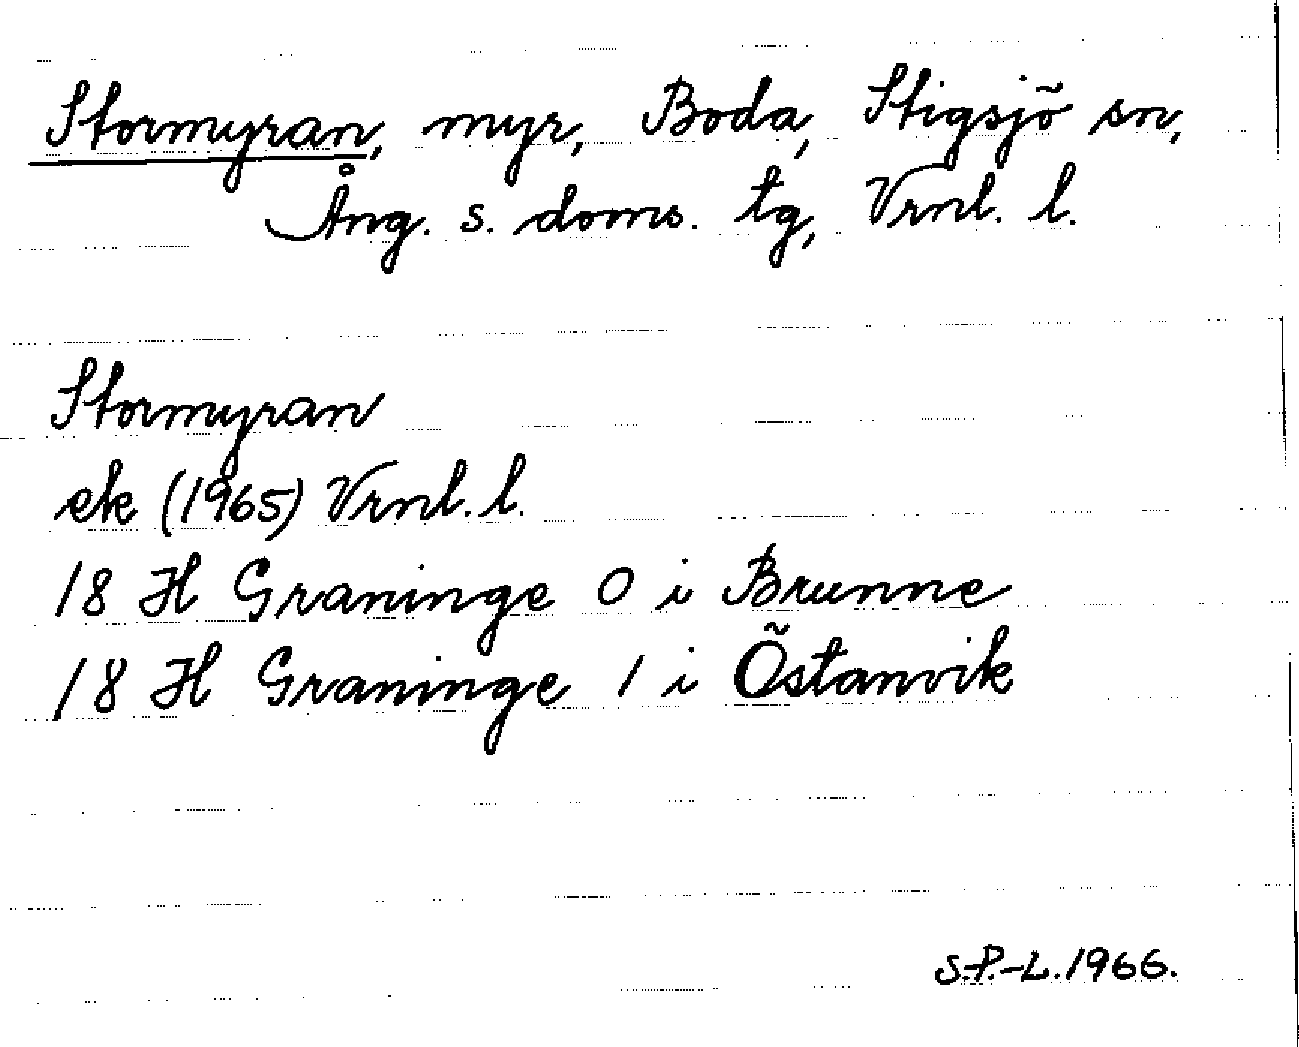 Stormyran, myr, Boda, Stigsjö sn,
Ång. s. doms. tg, Vrnl. l.
Stormyran
ek (1965) Vrnl. l.
18 H Graninge 0 i Brunne
18 H Graninge 1 i Östanvik
S.P.-L. 1966.